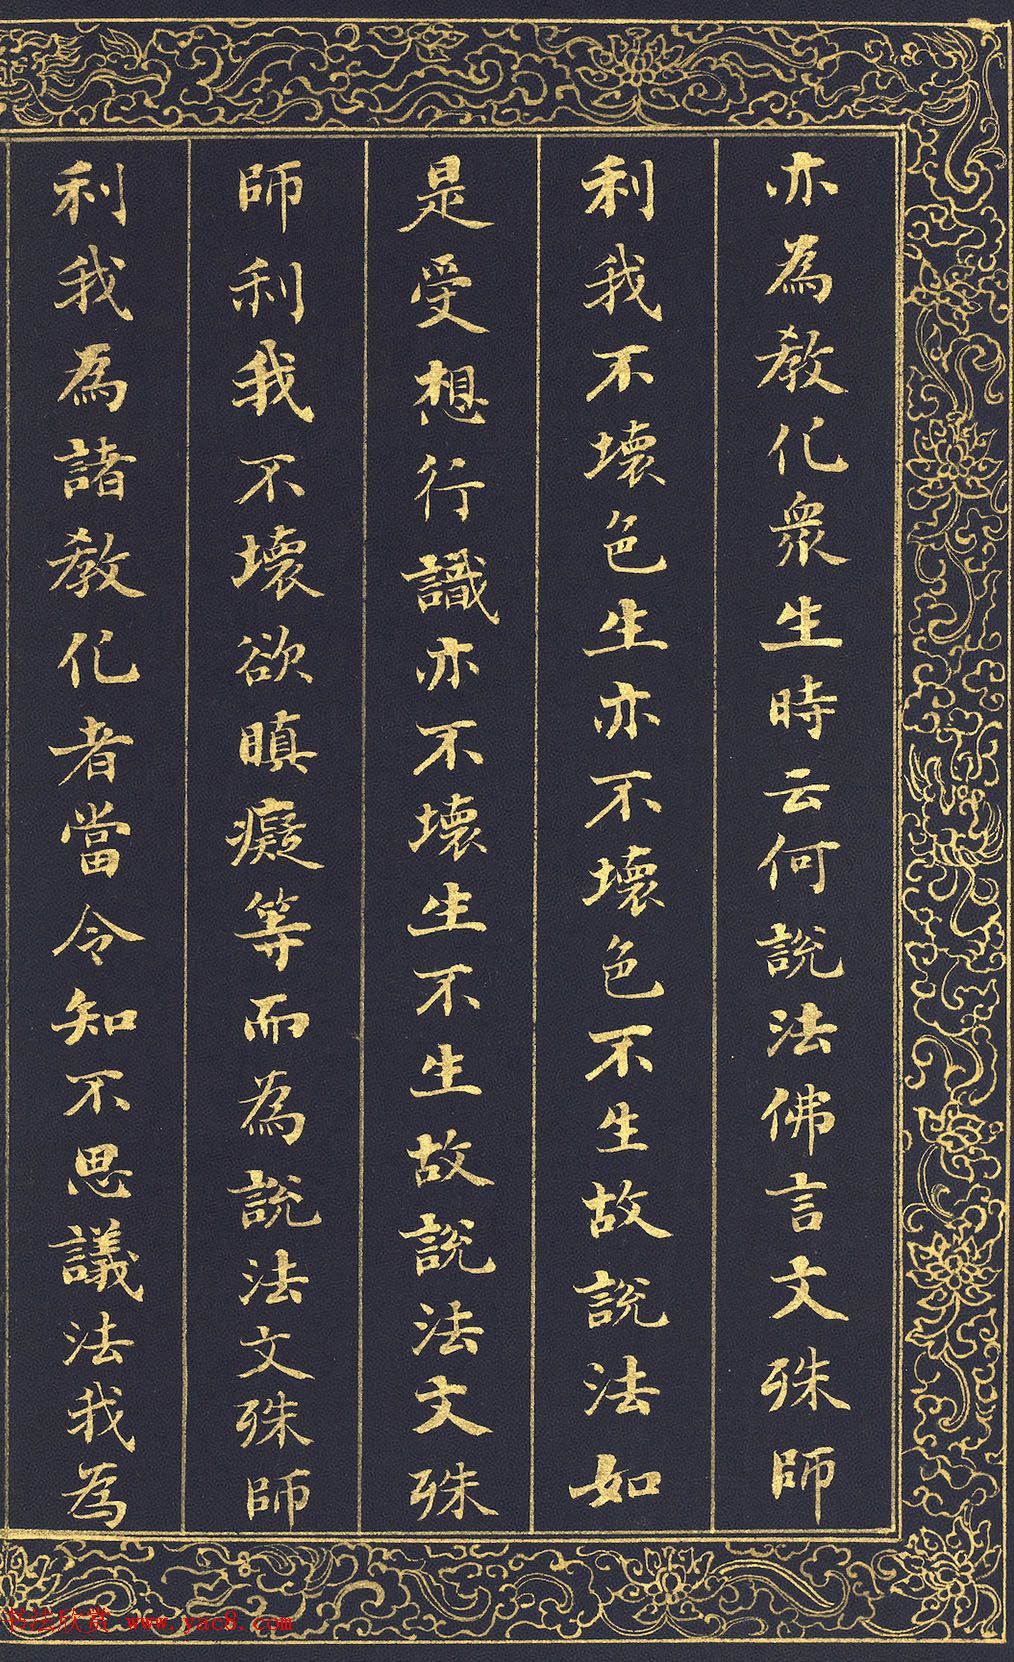 亦為教化眾生時云何說法佛言文殊師
利我不壞色生亦不壞色不生故說法如
是受想行識亦不壞生不生故說法文殊
師利我不壞欲瞋癡等而為說法文殊師
利我為諸教化者當令知不思議法我為
书法欣赏 www.yac8.com